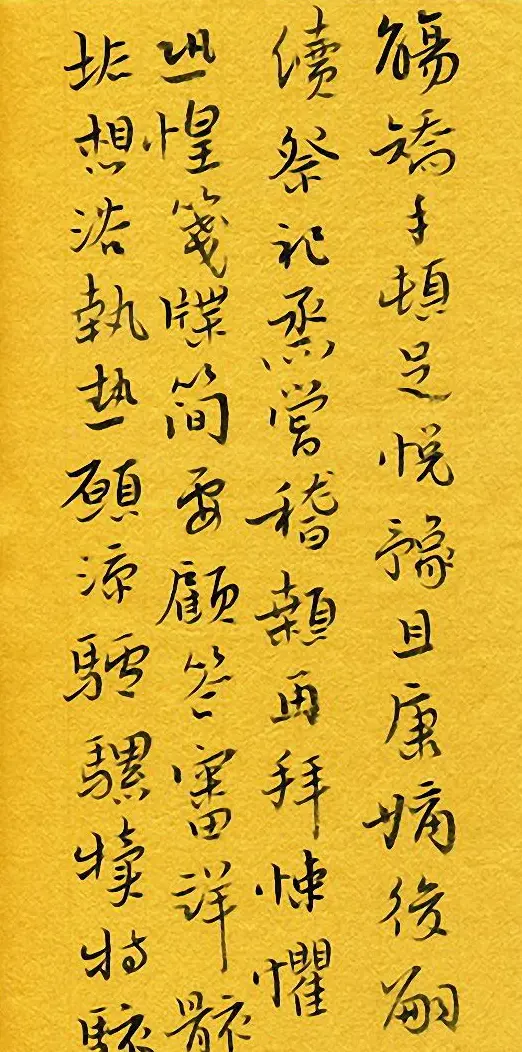 觴矯手頓足悅豫且康嫡後嗣
續祭祀烝嘗稽顙再拜悚懼
恐惶箋牒簡要顧答審詳骸
垢想浴執熱願涼驢騾犢特駭